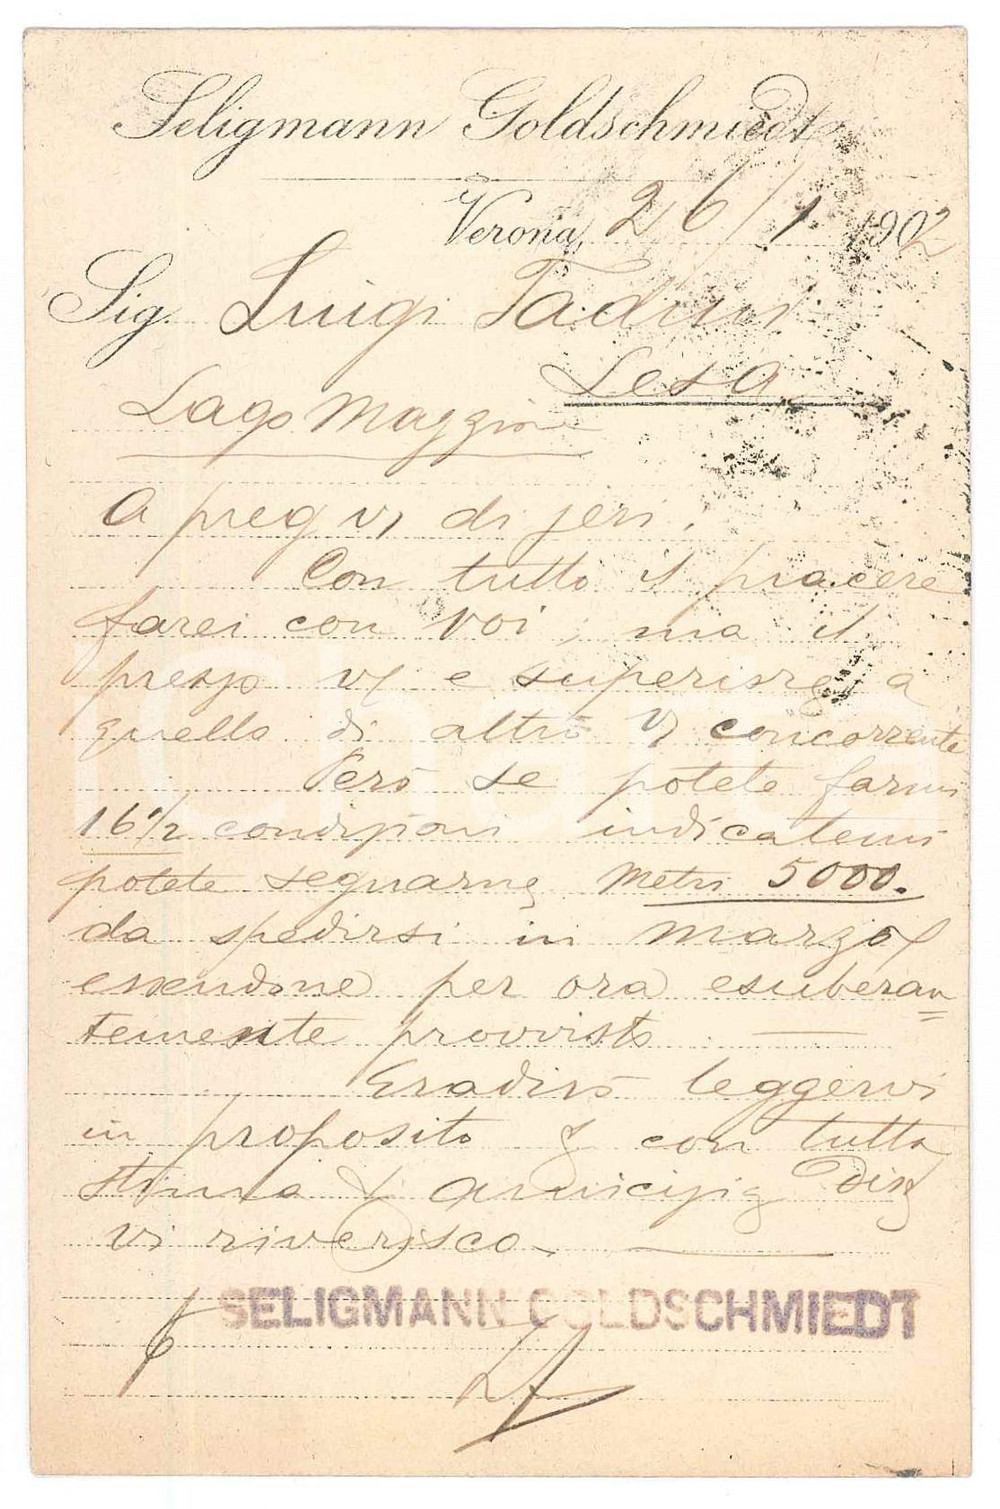 Seligmann Goldschmiedt
Verona, 26/1 1902
Sig. Luigi Tadini
Lesa
Lago Maggiore
A preg vs di jeri.
Con tutto il piacere
farei con voi, ma il
prezzo vs e superiore a
quello di altro vs concorrente
Però se potete farmi
16 1/2 condizioni indicatemi
potete segnarne Metri 5000.
da spedirsi in marzo
essendone per ora esuberan
temente provvisto
Gradirò leggervi
in proposito & con tutta
stima & amicizia
vi riverisco
SELIGMANN GOLDSCHMIEDT